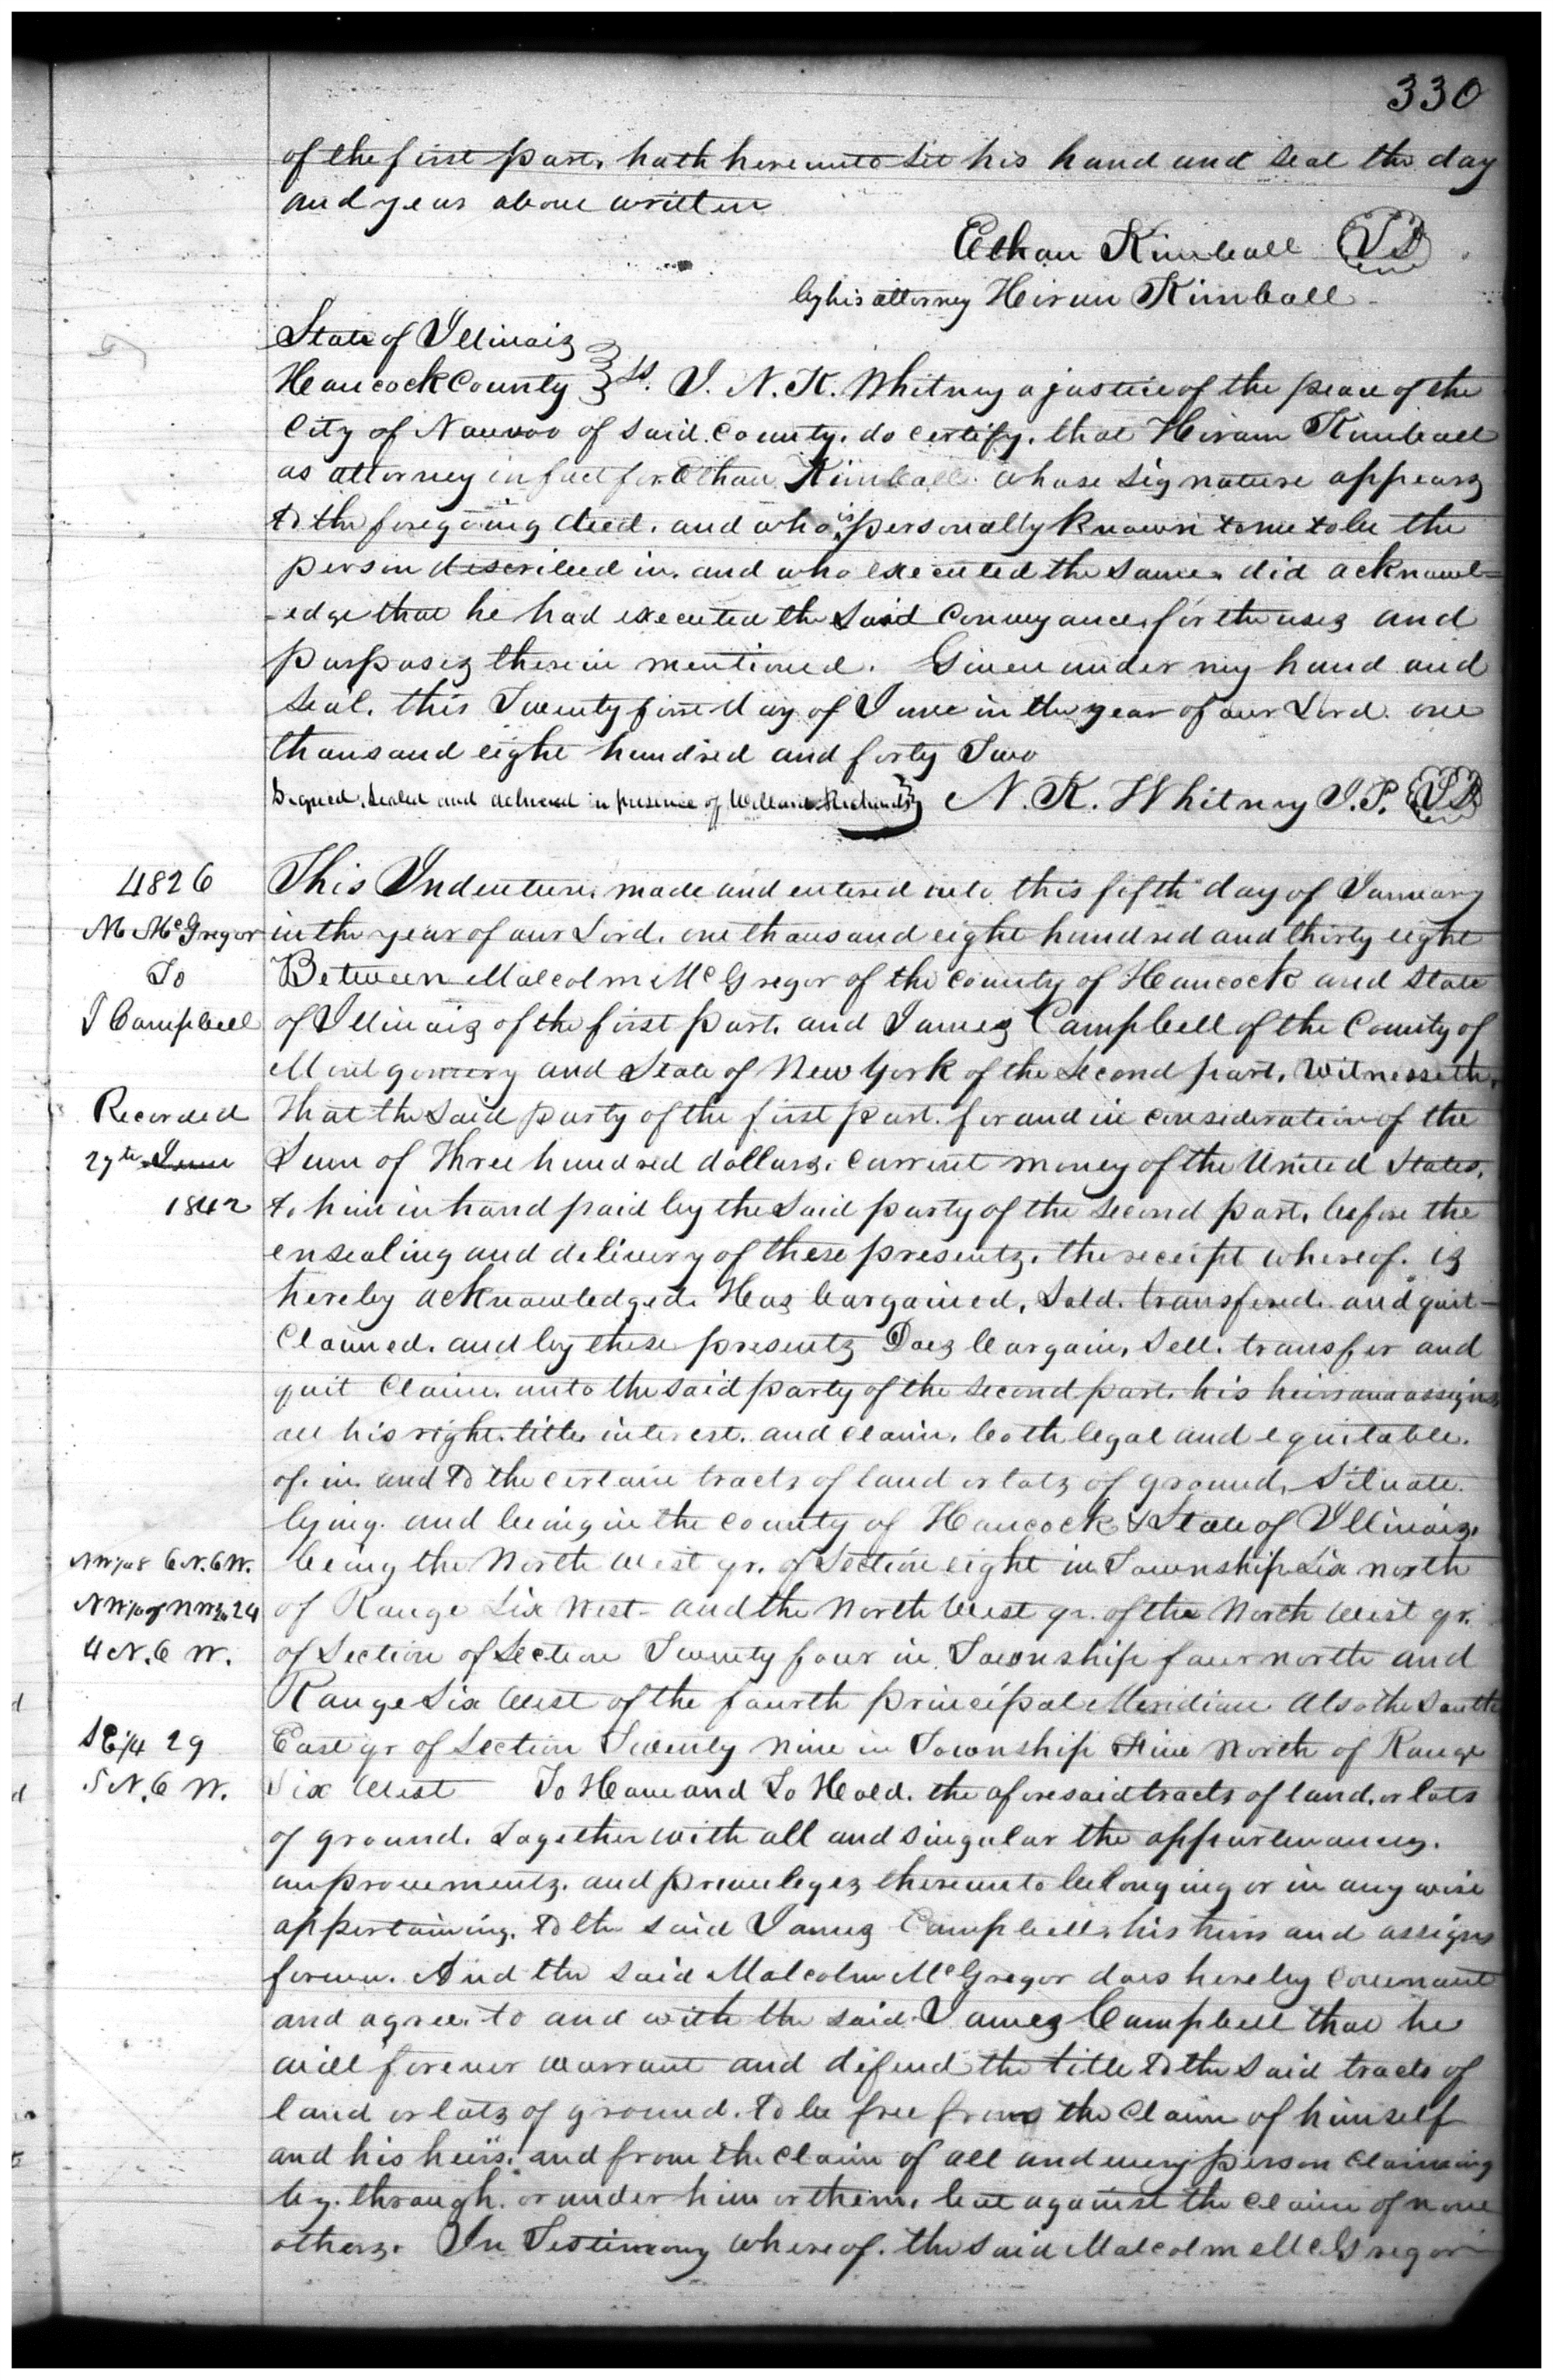 330
of the first part, hath hereunto set his hand and seal the day
and year above written
Ethan Kimball
by his attorney Hiram Kimball
State of Illinois
Hancock County ss. I. N. K. Whitney a justice of the peace of the
City of Nauvoo of said County. do certify. that Hiram Kimball
as attorney in fact for Ethan Kimball. whose signature appears
to the foregoing deed. and who is personally known to me to be the
person described in. and who executed the same. did acknowl=
-edge that he had executed the said conveyance, for the uses and
purposes therein mentioned. Given under my hand and
seal. this Twenty first day of June in the year of our Lord. one
thousand eight hundred and forty Two
Signed. sealed and delivered in presence of Willard Richards N. K. Whitney J. P.
4826
M McGregor
To
J Campbell
Recorded
27th June
1842
This Indenture. made and entered into this fifth day of January
in the year of our Lord. one thousand eight hundred and thirty eight
Between Malcolm McGregor of the County of Hancock and State
of Illinois of the first part. and James Campbell of the County of
Montgomery and State of New York of the second part. Witnesseth.
that the said party of the first part. for and in consideration of the
Sum of Three hundred dollars. current money of the United States.
to him in hand paid by the said party of the second part. before the
ensealing and delivery of these presents. the receipt whereof. is
hereby acknowledged. Has bargained, Sold. transfered. and quit-
claimed. and by these presents Does bargain, Sell. transfer and
quit Claim. unto the said party of the second part. his heirs and assigns
all his right. title, interest. and claim. both legal and equitable.
of. in. and to the certain tracts of land or lots of ground, Situate.
lying. and being in the county of Hancock & State of Illinois.
NW 1/4 8 6 N. 6 W. being the North West qr. of Section eight in Township Six north
NW 1/4 of NW 1/4 24 of Range Six West - and the North West qr. of the North West qr.
4 N. 6 W. of Section of Section Twenty four in Township four north and
Range Six West of the fourth principal Meridian Also the South
SE 1/4 29 East qr of Section Twenty nine in Township Five North of Range
5 N. 6 W. Six West To Have and To Hold. the aforesaid tracts of land. or lots
of ground. together with all and singular the appurtenances.
improvements. and priveleges thereunto belonging or in any wise
appertaining. to the said James Campbell. his heirs and assigns
forever. And the said Malcolm McGregor does hereby covenant
and agree. to and with the said James Campbell that he
will forever warrant and defend the title to the said tracts of
land or lots of ground. to be free from the claim of himself
and his heirs. and from the claim of all and every person claiming
by. through. or under him or them. but against the claim of none
others. In Testimony whereof. the said Malcolm McGregor